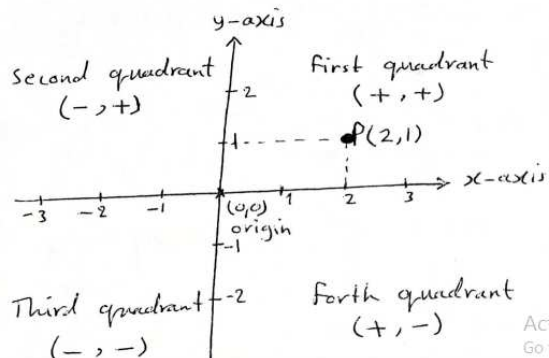 y-axis
Second quadrant
(-,+)
first quadrant
(+,+)
2
1
P(2,1)
-3 -2 -1 1 2 3 x-axis
(0,0)
origin
-1
-2
Third quadrant
(-,-)
forth quadrant
(+,-)
Ac
Go